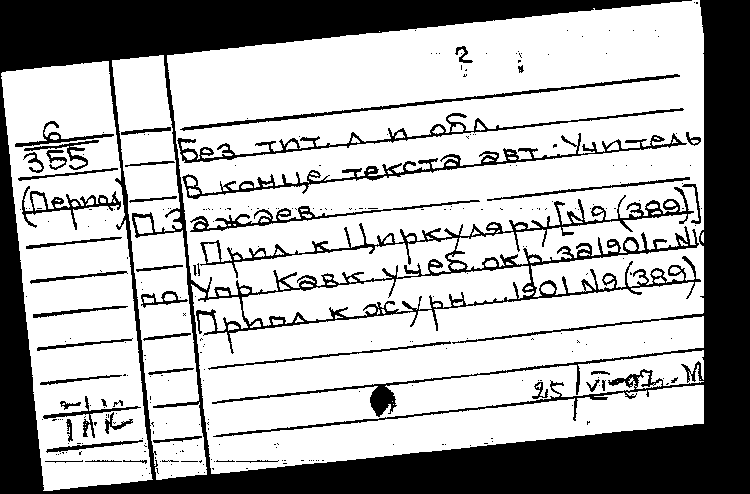 2
6
355
(Период)
Без тит. л и обл.
В конце текста авт.: Учитель
П. Зажаев.
Прил. к Циркуляру [№9 (389)]
по Упр. Кавк. учеб. окр. за 1901 г. №
Прил. к журн.... 1901 №9 (389)
25 | VI-97. М